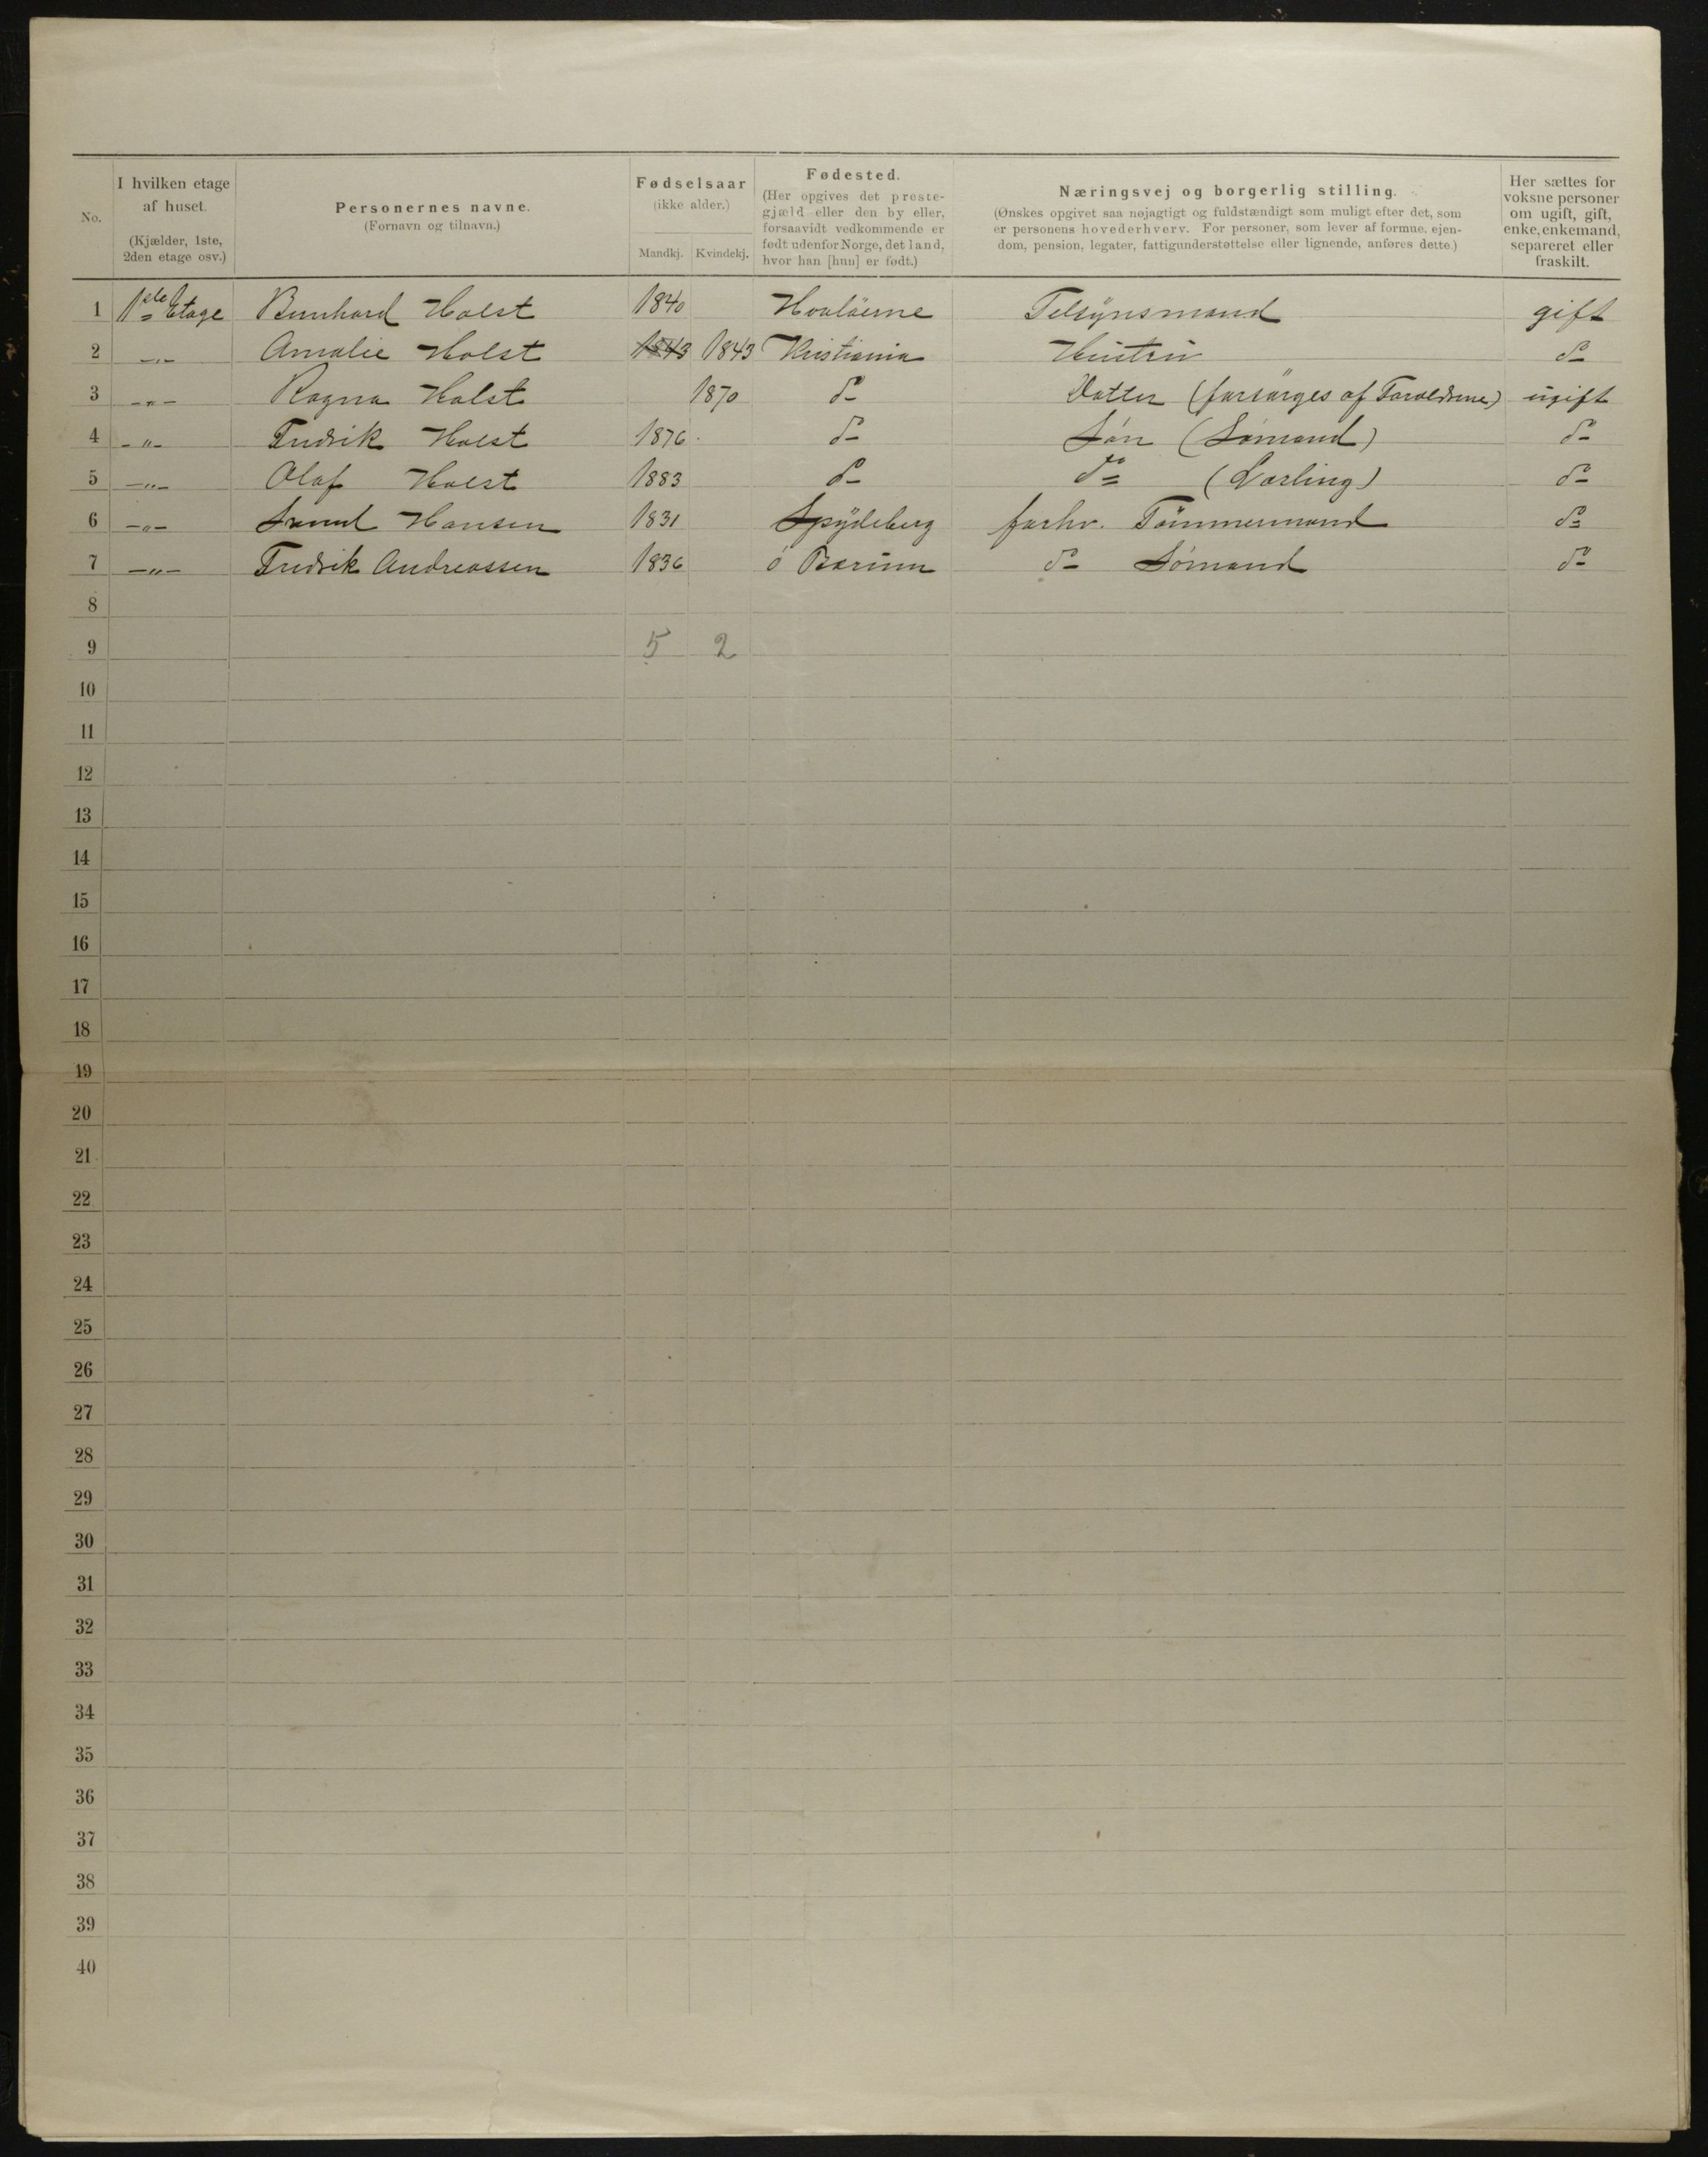 No.
I hvilken etage af huset.
(Kjælder, 1ste, 2den etage osv.)
Personernes navne.
(Fornavn og tilnavn.)
Fødselsaar
(ikke alder.)
Mandkj. Kvindekj.
Fødested.
(Her opgives det prestegjæld eller den by eller, forsaavidt vedkommende er født udenfor Norge, det land, hvor han [hun] er født.)
Næringsvej og borgerlig stilling.
(Ønskes opgivet saa nøjagtigt og fuldstændigt som muligt efter det, som er personens hovederhverv. For personer, som lever af formue, ejendom, pension, legater, fattigunderstøttelse eller lignende, anføres dette.)
Her sættes for voksne personer om ugift, gift, enke, enkemand, separeret eller fraskilt.
1 1ste Etage Bernhard Holst 1840 Hvaløerne Tilsynsmand gift
2 -"- Amalie Holst 1843 1843 Kristiania Hustru do
3 -"- Ragna Holst 1870 do Datter (forsørges af Forældrene) ugift
4 -"- Fredrik Holst 1876 do Søn (Sømand) do
5 -"- Olaf Holst 1883 do do (Lærling) do
6 -"- Hansen 1831 Spydeberg forhv. Tømmermand do
7 -"- Fredrik Andreassen 1836 ø Bærum do Sømand do
8
9 5 2
10
11
12
13
14
15
16
17
18
19
20
21
22
23
24
25
26
27
28
29
30
31
32
33
34
35
36
37
38
39
40